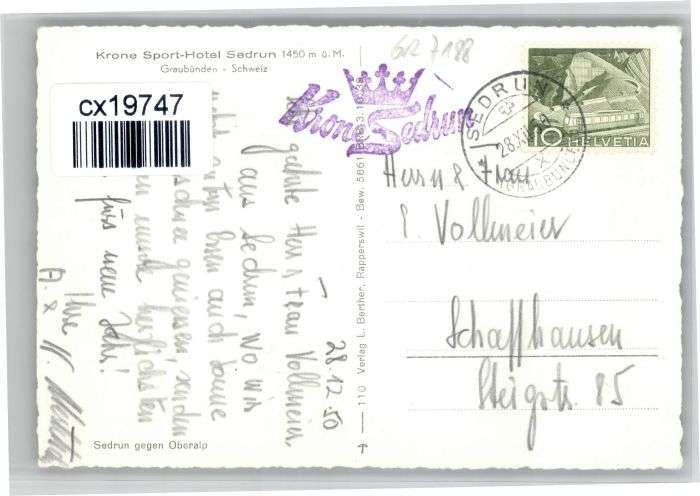 Krone Sport-Hotel Sedrun 1450 m ü.M.
Graubünden - Schweiz
cx19747
GR 7188
Krone Sedrun
SEDRUN
28.XII.50
(GRAUBÜNDEN)
10
HELVETIA
28.12.50
geehrte Herr & Frau Vollmeier,
aus Sedrun, wo wir
guten Essen auch Sonne
Schnee geniessen, senden
wir herzlichsten
fürs neue Jahr!
Ihre
110 Verlag L. Berther, Rapperswil - Bew. 5861
Herrn & Frau
E. Vollmeier
Schaffhausen
Steigstr. 85
Sedrun gegen Oberalp